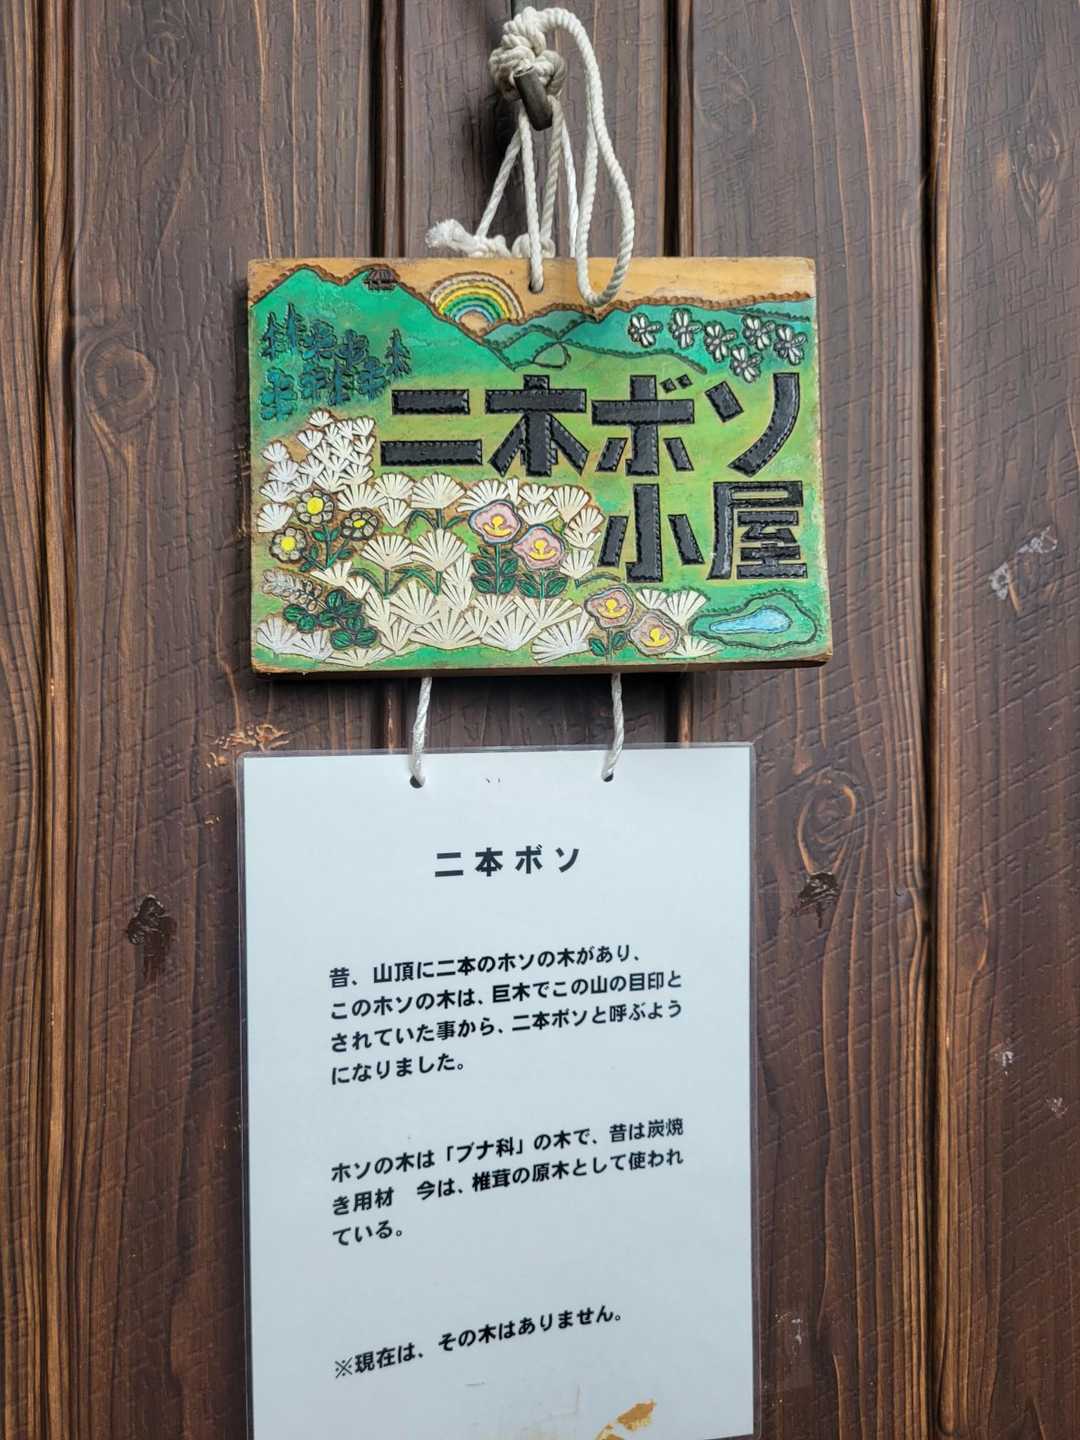 二本ボソ
小屋
二本ボソ
昔、山頂に二本のホソの木があり、
このホソの木は、巨木でこの山の目印と
されていた事から、二本ボソと呼ぶよう
になりました。
ホソの木は「ブナ科」の木で、昔は炭焼
き用材　今は、椎茸の原木として使われ
ている。
※現在は、その木はありません。